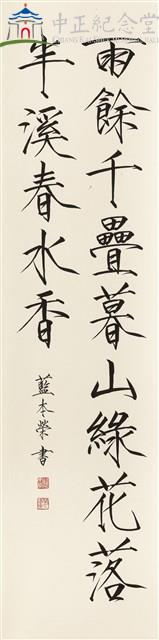 中正紀念堂
雨餘千疊暮山綠花落
半溪春水香
藍本榮書